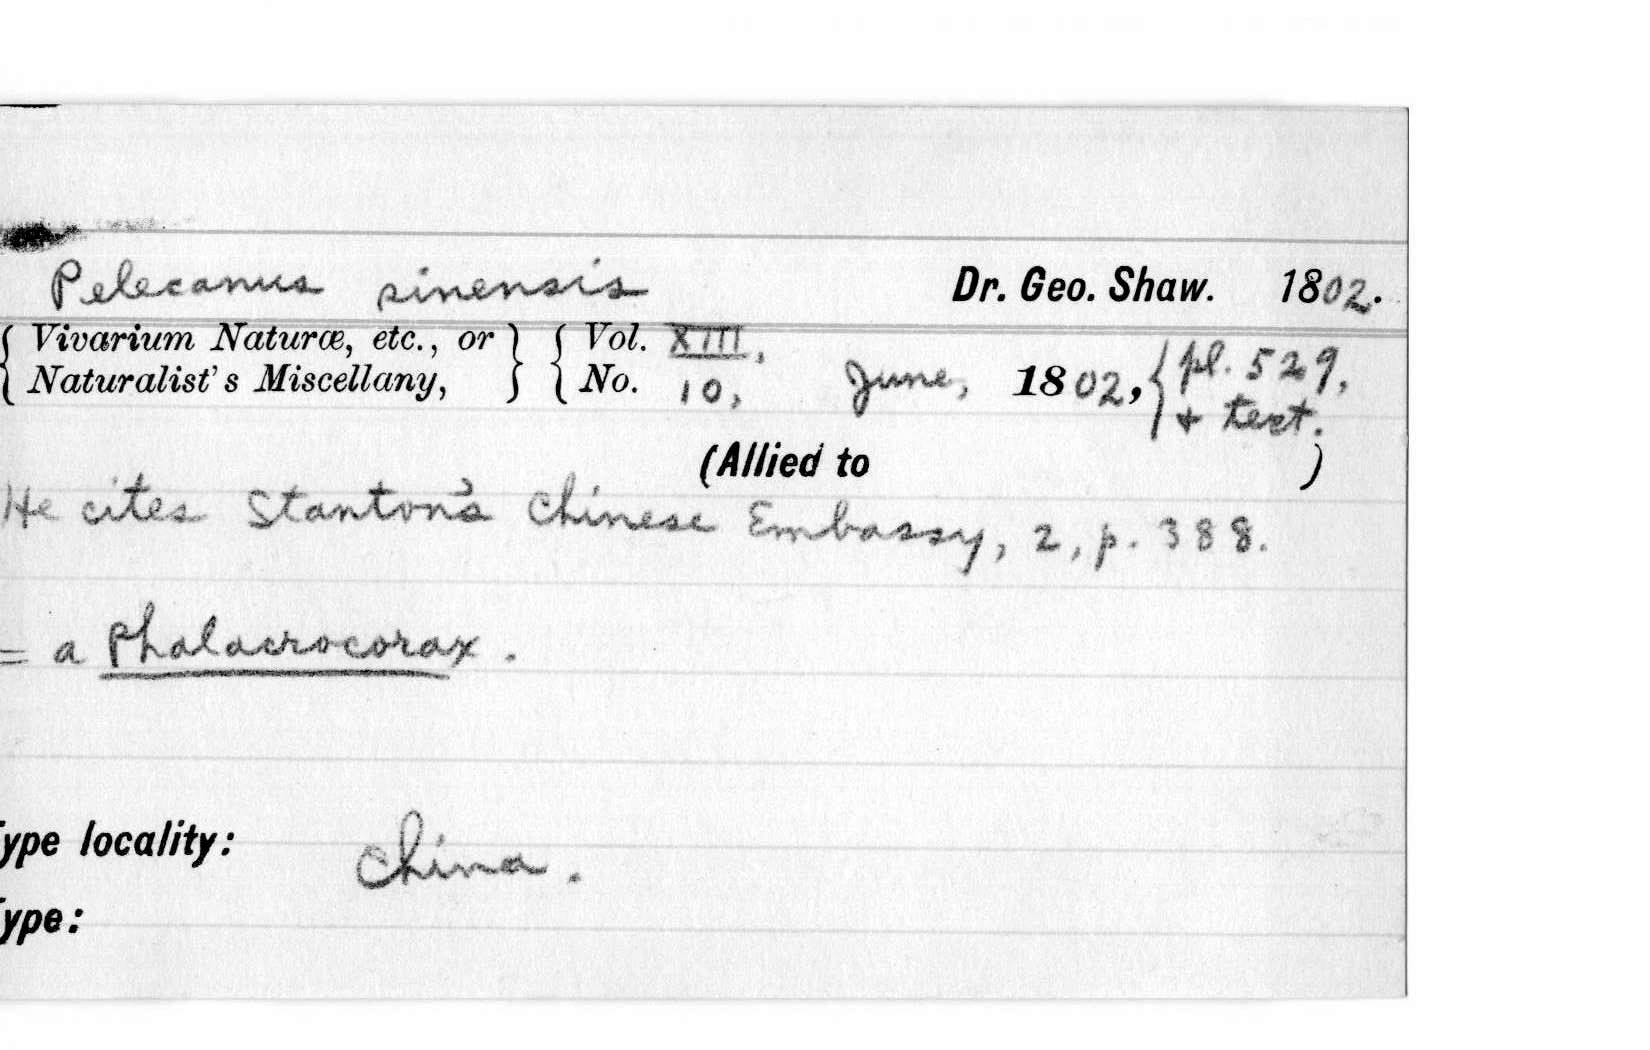 Pelecanus sinensis Dr. Geo. Shaw. 1802.
{ Vivarium Naturæ, etc., or } { Vol. XIII,
{ Naturalist's Miscellany, } { No. 10, June, 1802, { pl. 529, + text.
(Allied to )
He cites Stanton's Chinese Embassy, 2, p. 388.
= a Phalacrocorax.
Type locality: China.
Type: